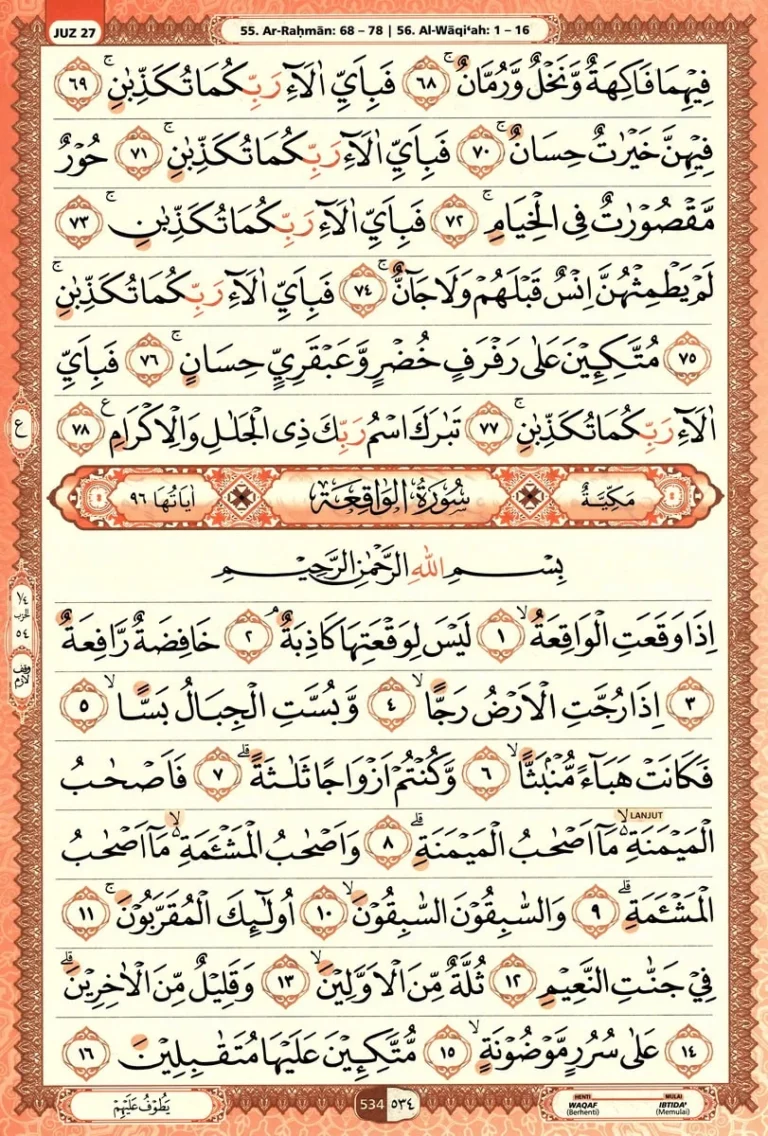 JUZ 27
55. Ar-Raḥmān: 68 – 78 | 56. Al-Wāqi‘ah: 1 – 16
فِيْهِمَا فَاكِهَةٌ وَّنَخْلٌ وَّرُمَّانٌۚ ٦٨ فَبِاَيِّ اٰلَاۤءِ رَبِّكُمَا تُكَذِّبٰنِۚ ٦٩
فِيْهِنَّ خَيْرٰتٌ حِسَانٌۚ ٧٠ فَبِاَيِّ اٰلَاۤءِ رَبِّكُمَا تُكَذِّبٰنِۚ ٧١ حُوْرٌ
مَّقْصُوْرٰتٌ فِى الْخِيَامِۚ ٧٢ فَبِاَيِّ اٰلَاۤءِ رَبِّكُمَا تُكَذِّبٰنِۚ ٧٣
لَمْ يَطْمِثْهُنَّ اِنْسٌ قَبْلَهُمْ وَلَا جَاۤنٌّۚ ٧٤ فَبِاَيِّ اٰلَاۤءِ رَبِّكُمَا تُكَذِّبٰنِۚ
٧٥ مُتَّكِـِٕيْنَ عَلٰى رَفْرَفٍ خُضْرٍ وَّعَبْقَرِيٍّ حِسَانٍۚ ٧٦ فَبِاَيِّ
اٰلَاۤءِ رَبِّكُمَا تُكَذِّبٰنِۚ ٧٧ تَبٰرَكَ اسْمُ رَبِّكَ ذِى الْجَلٰلِ وَالْاِكْرَامِ ࣖ ٧٨
ع
مَكِّيَّةٌ
سُوْرَةُ الْوَاقِعَةِ
اٰيَاتُهَا ٩٦
بِسْمِ اللّٰهِ الرَّحْمٰنِ الرَّحِيْمِ
١/٤
الحزب
٥٤
اِذَا وَقَعَتِ الْوَاقِعَةُۙ ١ لَيْسَ لِوَقْعَتِهَا كَاذِبَةٌۘ ٢ خَافِضَةٌ رَّافِعَةٌ
٣ اِذَا رُجَّتِ الْاَرْضُ رَجًّاۙ ٤ وَّبُسَّتِ الْجِبَالُ بَسًّاۙ ٥
فَكَانَتْ هَبَاۤءً مُّنْۢبَثًّاۙ ٦ وَّكُنْتُمْ اَزْوَاجًا ثَلٰثَةًۗ ٧ فَاَصْحٰبُ
LANJUT
الْمَيْمَنَةِ ەۙ مَآ اَصْحٰبُ الْمَيْمَنَةِۗ ٨ وَاَصْحٰبُ الْمَشْـَٔمَةِ ەۙ مَآ اَصْحٰبُ
الْمَشْـَٔمَةِۗ ٩ وَالسّٰبِقُوْنَ السّٰبِقُوْنَۙ ١٠ اُولٰۤىِٕكَ الْمُقَرَّبُوْنَۚ ١١
فِيْ جَنّٰتِ النَّعِيْمِ ١٢ ثُلَّةٌ مِّنَ الْاَوَّلِيْنَۙ ١٣ وَقَلِيْلٌ مِّنَ الْاٰخِرِيْنَۗ
١٤ عَلٰى سُرُرٍ مَّوْضُوْنَةٍۙ ١٥ مُّتَّكِـِٕيْنَ عَلَيْهَا مُتَقٰبِلِيْنَ ١٦
يَطُوْفُ عَلَيْهِمْ
534 ٥٣٤
HENTI WAQAF (Berhenti)
MULAI IBTIDA' (Memulai)